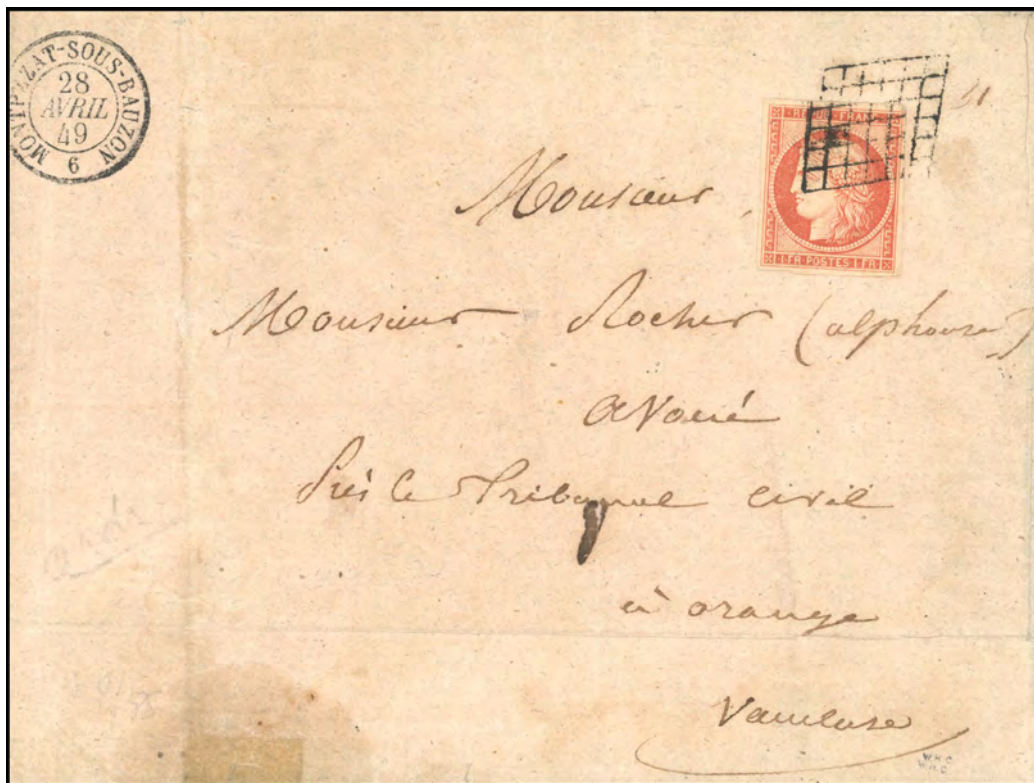 MONTPEZAT-SOUS-BAUZON
28
AVRIL
49
6
REPUB. FRANC.
1 FR. POSTES 1 FR
Monsieur
Monsieur Rocher (alphonse)
avoué
Près le Tribunal civil
à orange
Vaucluse